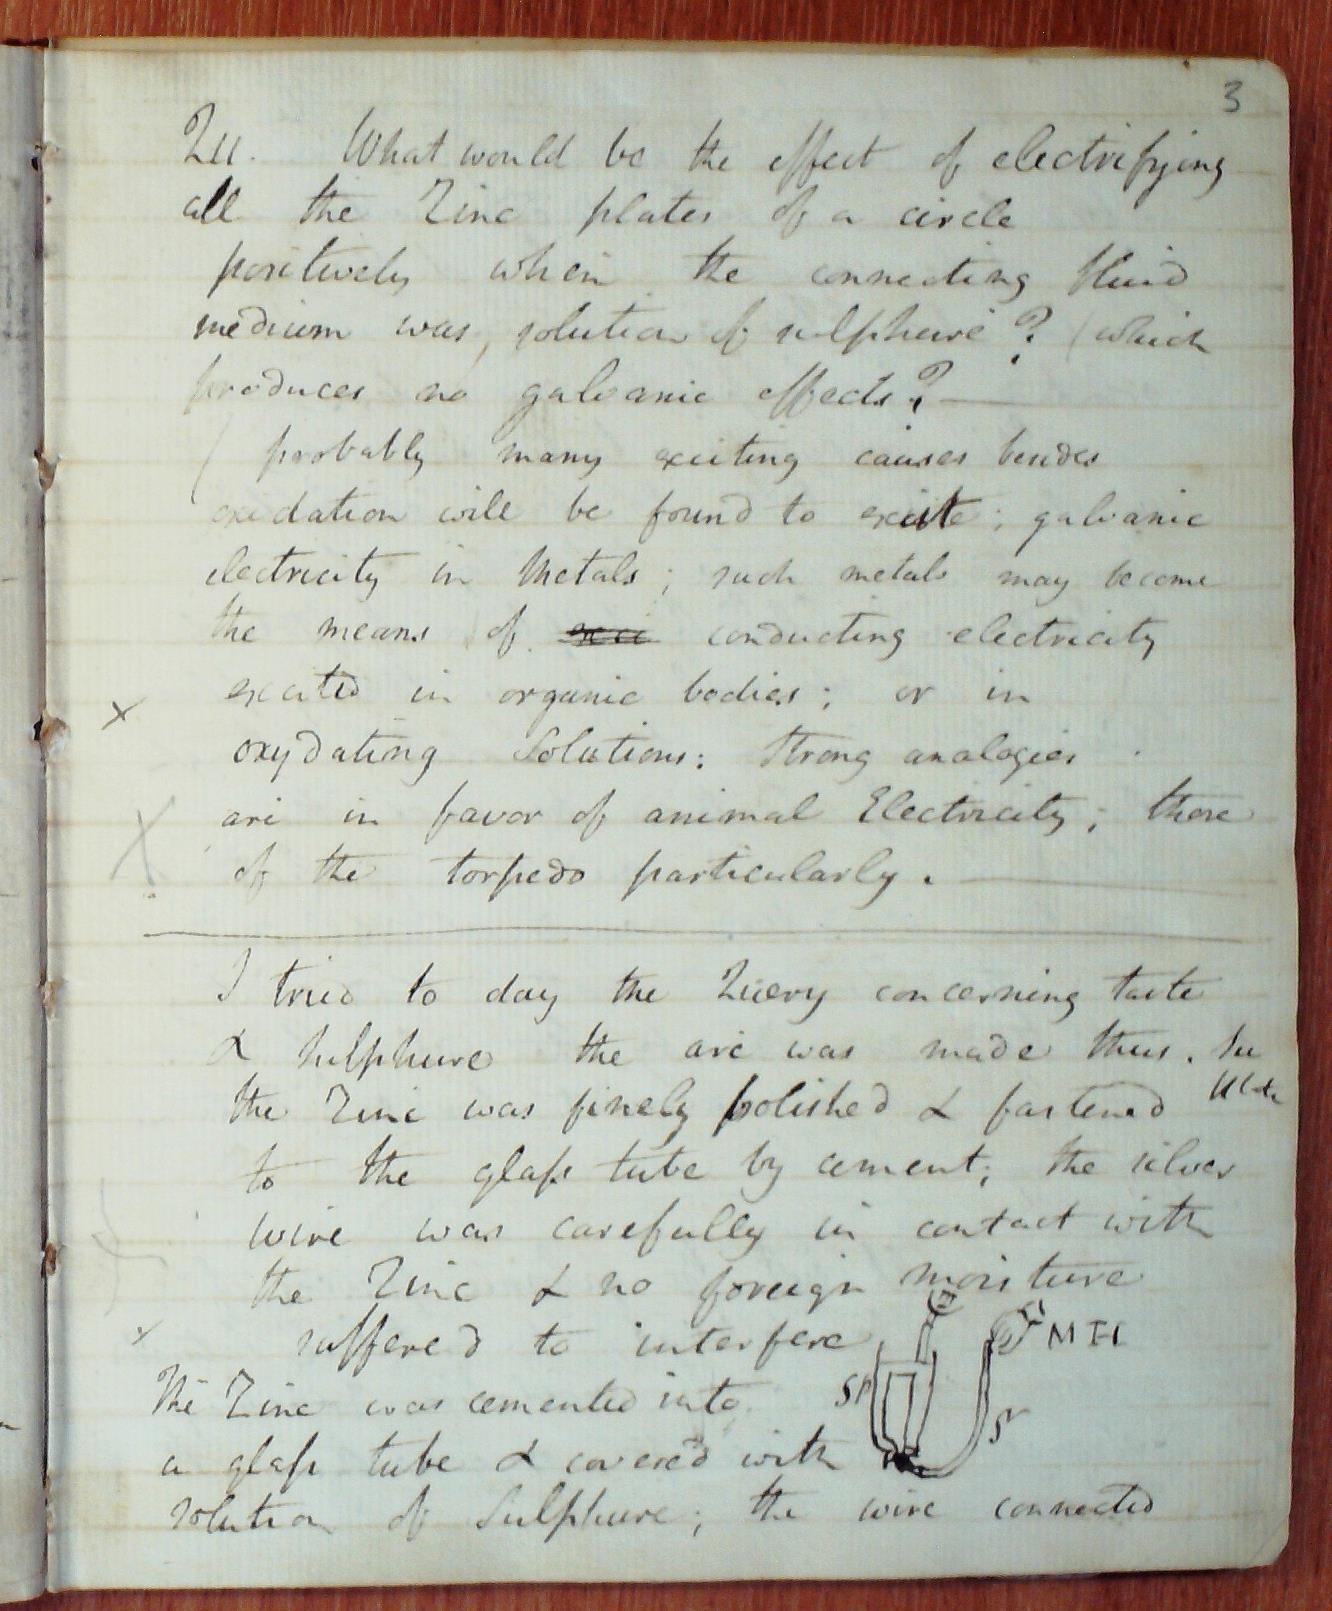 3
Qu. What would be the effect of electrifying
all the Zinc plates of a circle
positively when the connecting fluid
medium was, solution of sulphure? (which
produces no galvanic effects?—
( probably many exciting causes besides
oxidation will be found to excite; galvanic
electricity in Metals; such metals may become
the means of conducting electricity
excited in organic bodies; or in
x
oxydating Solutions: Strong analogies
are in favor of animal Electricity; those
X
of the torpedo particularly. —
I tried to day the Query concerning taste
& Sulphure the arc was made thus.
the Zinc was finely polished & fastened
to the glaſs tube by cement; the silver
wire was carefully in contact with
the Zinc & no foreign moisture
suffered to interfere
x
M
The Zinc was cemented into
S
a glaſs tube & covered with
solution of Sulphure; the wire connected